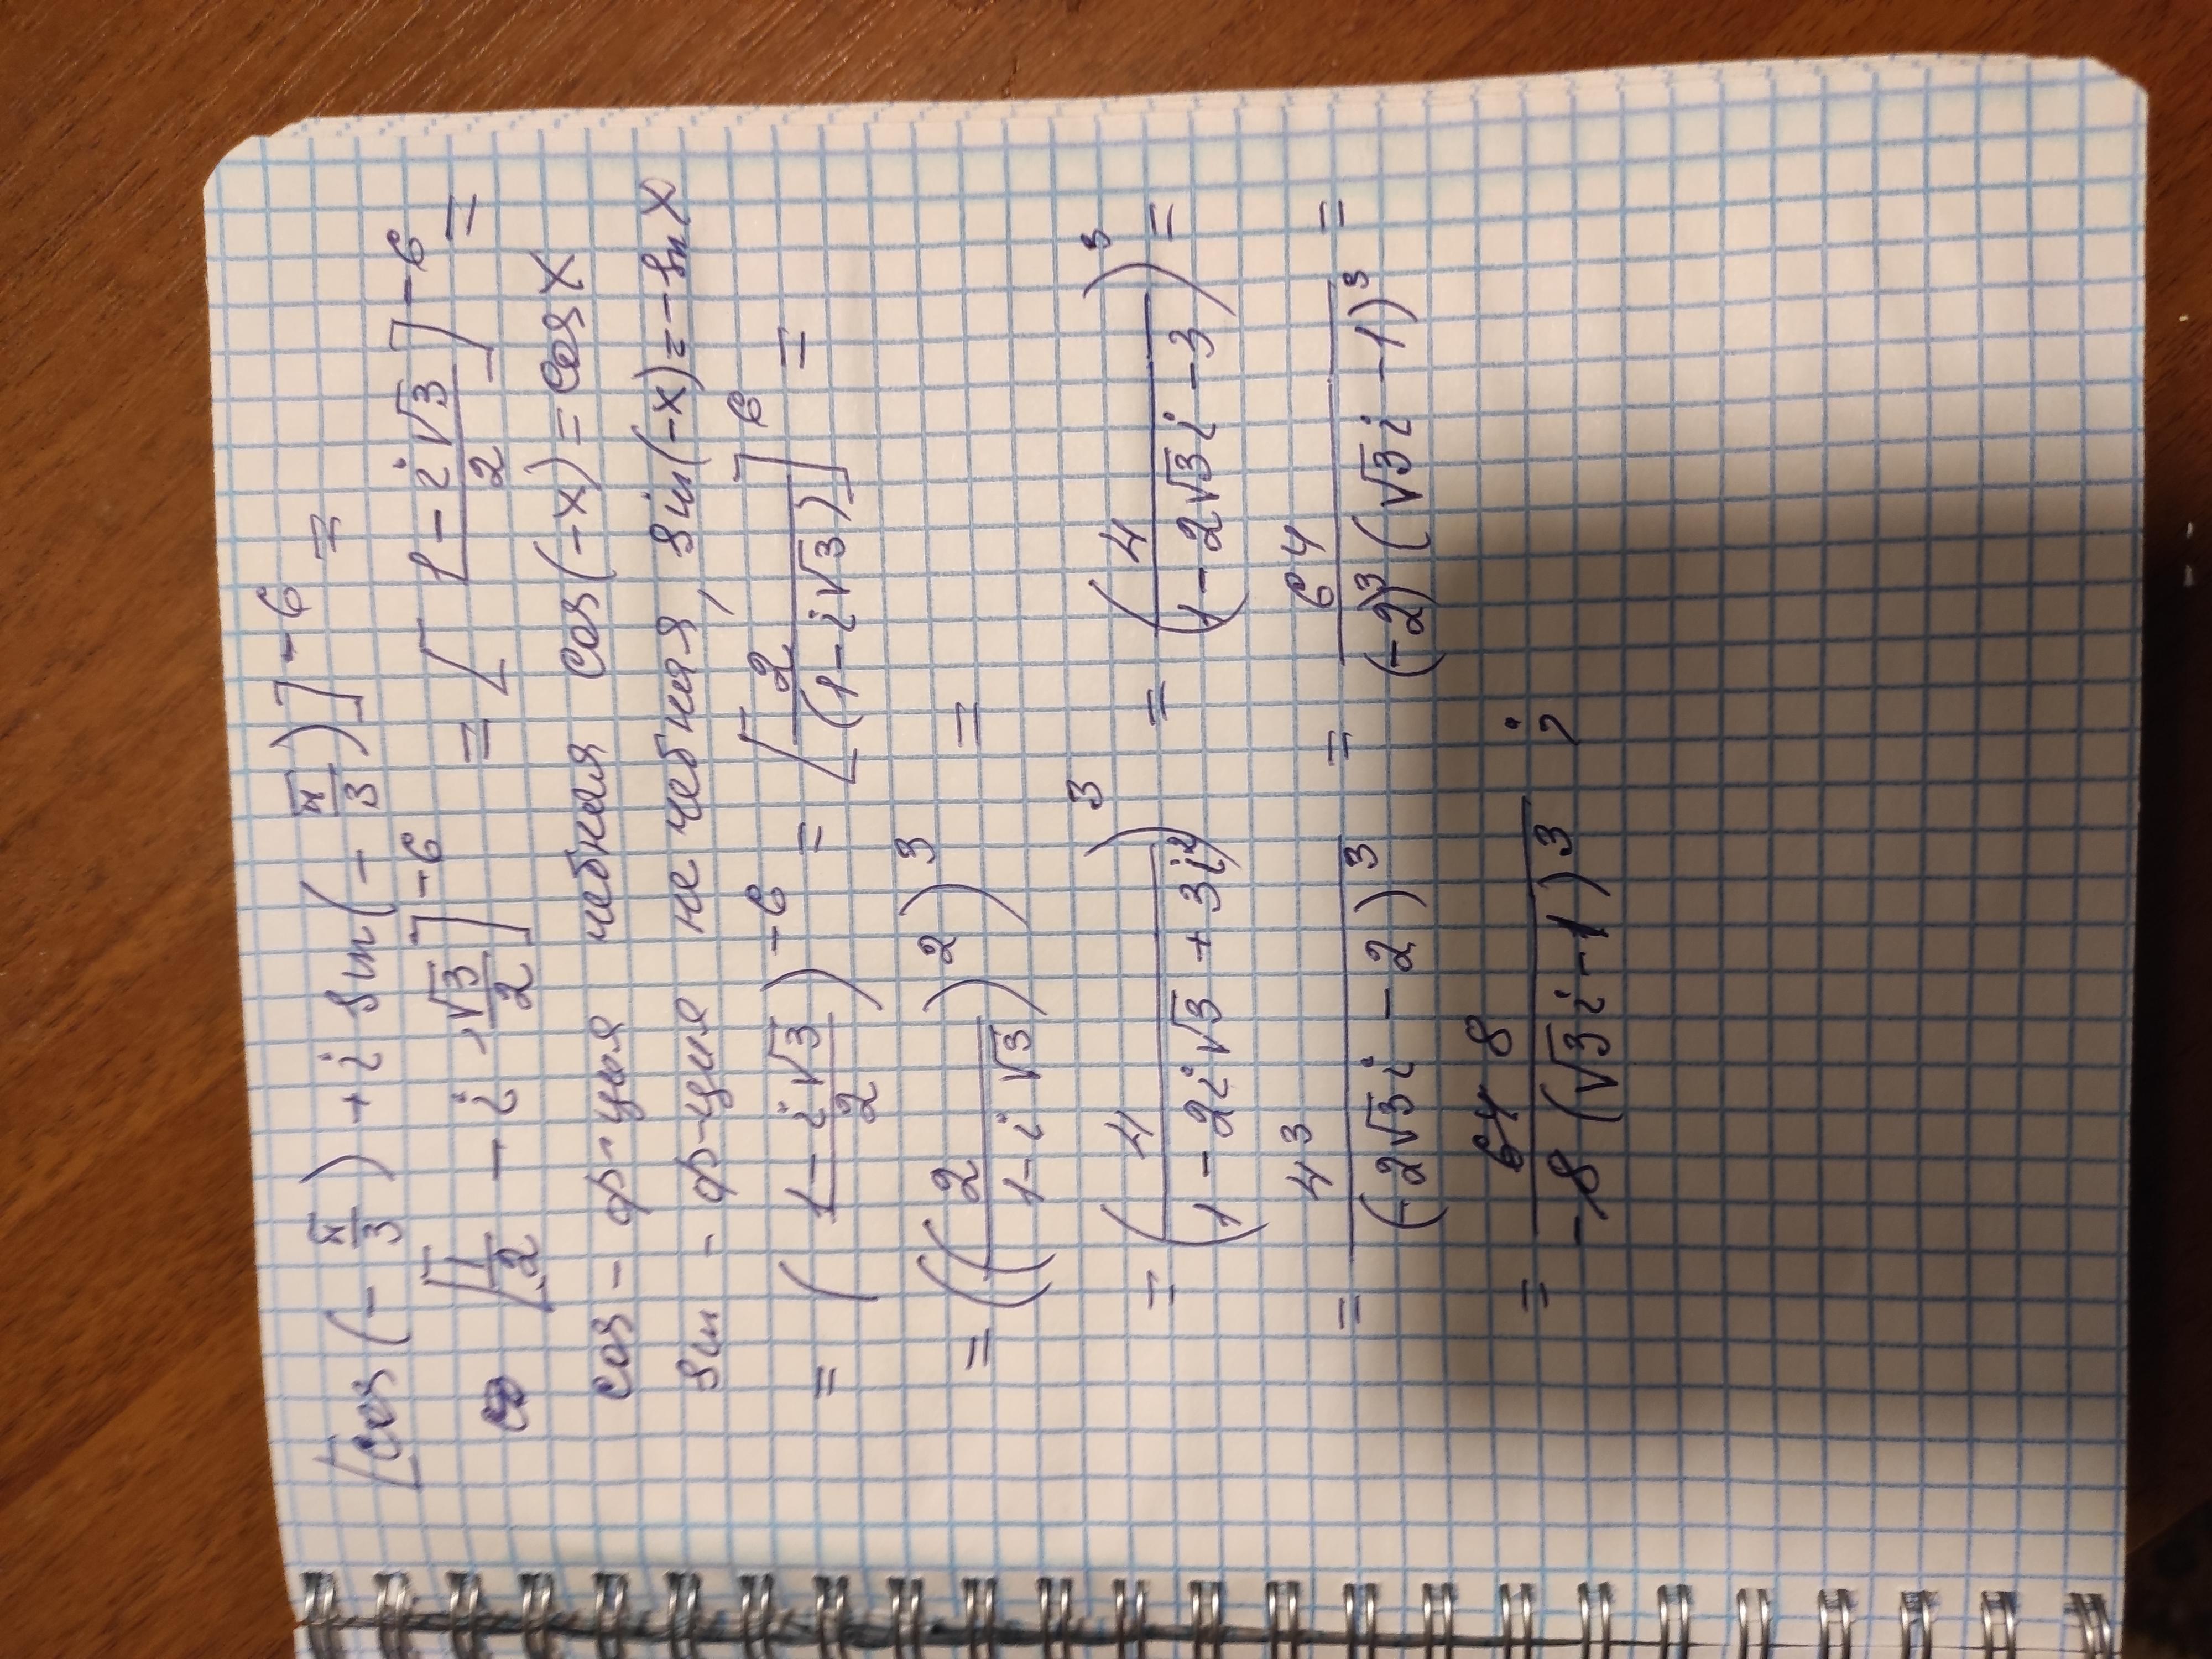 [cos(-π/3) + i sin(-π/3)]^-6 =
[1/2 - i · √3/2]^-6 = [(1 - i√3)/2]^-6 =
cos - ф-ция чебная cos(-x) = cos x
sin - ф-ция не чебная, sin(-x) = -sin x
= ((1 - i√3)/2)^-6 = [2/(1 - i√3)]^6 =
= ((2/(1 - i√3))^2)^3 =
= (4/(1 - 2i√3 + 3i^2))^3 = (4/(1 - 2√3i - 3))^3 =
= 4^3/(-2√3i - 2)^3 = 64/((-2)^3(√3i - 1)^3) =
= 64 8/(-8(√3i - 1)^3) ;